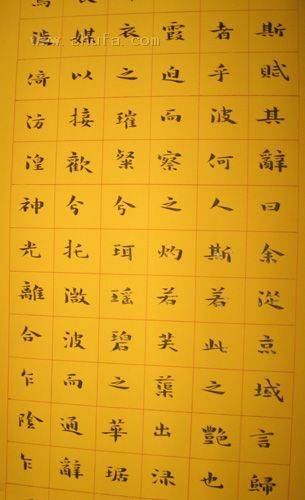 斯賦其辭曰余從京域言歸
者乎彼何人斯若此之艷也
霞迫而察之灼若芙蕖出渌
衣之璀粲兮珥瑤碧之華琚
媒以接歡兮托微波而通辭
焉徙倚彷徨神光離合乍陰乍